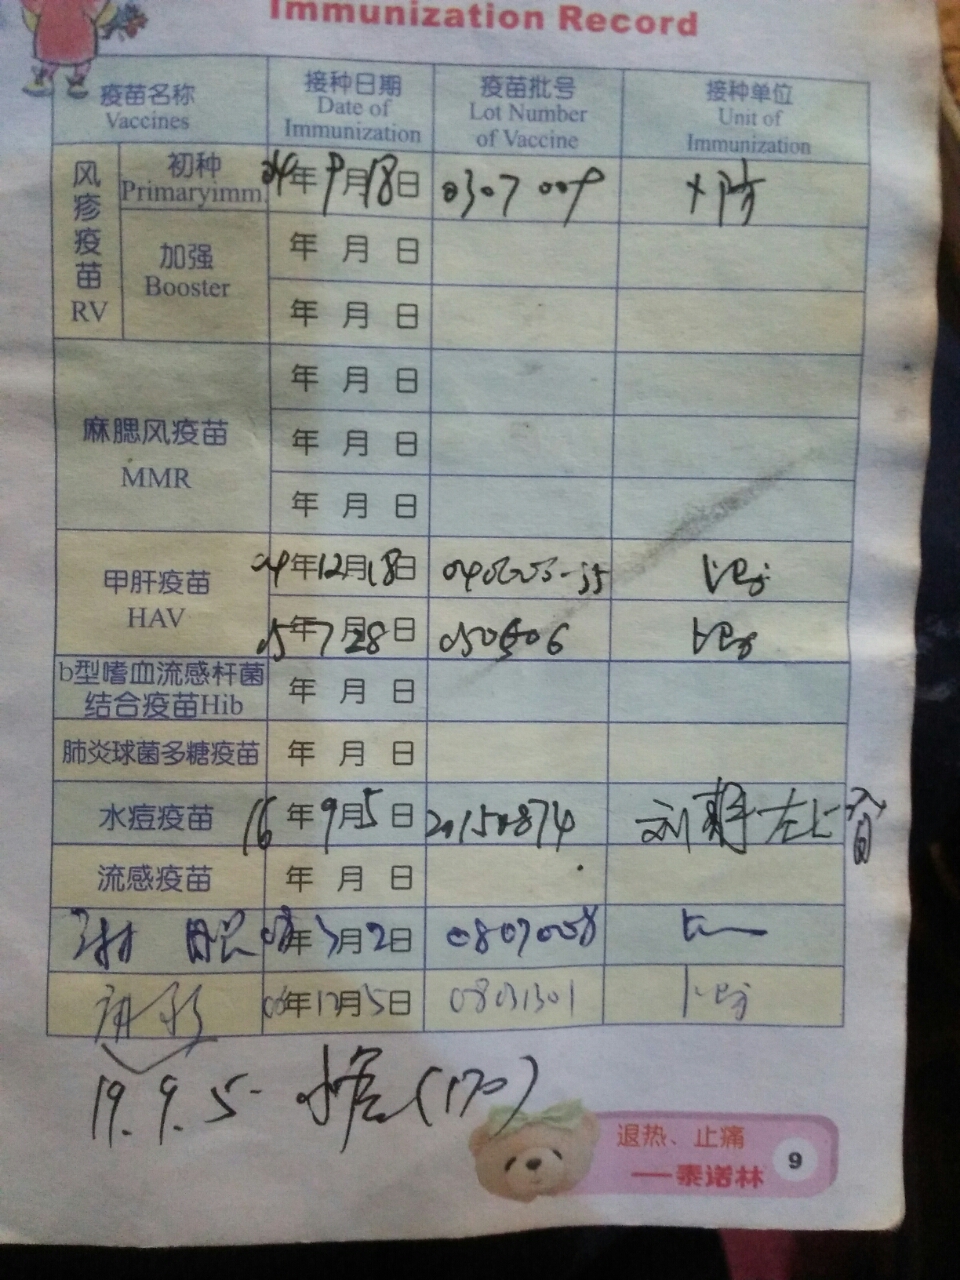 Immunization Record
疫苗名称 接种日期 疫苗批号 接种单位
Vaccines Date of Lot Number Unit of
Immunization of Vaccine Immunization
风疹疫苗 RV
初种 04年9月18日 0307009
Primaryimm.
加强 年 月 日
Booster
年 月 日
年 月 日
麻腮风疫苗 年 月 日
MMR
年 月 日
甲肝疫苗 04年12月18日
HAV
05年7月28日 050606
b型嗜血流感杆菌 年 月 日
结合疫苗Hib
肺炎球菌多糖疫苗 年 月 日
水痘疫苗 16年9月5日 20150874
流感疫苗 年 月 日
年 月2日 0807008
年12月5日 08031301
19.9.5
退热、止痛
——泰诺林
9